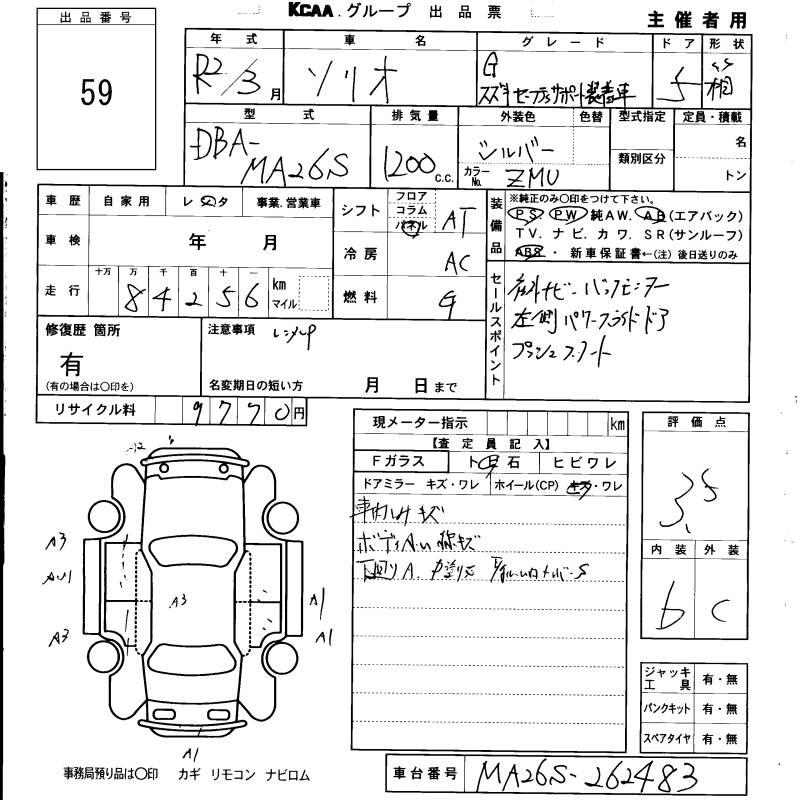 KCAA.グループ 出品票
主催者用
出品番号
59
年式 車名 グレード ドア 形状
R2/3月 ソリオ G 5 箱
スズキセーフティサポート装着車
型式 排気量 外装色 色替 型式指定 定員・積載
DBA-MA26S 1200 c.c. シルバー 名
カラーNo. ZMU 類別区分 トン
車歴 自家用 レンタ 事業.営業車
車検 年 月
走行 十万 万 千 百 十 一
84256 km マイル
シフト フロア コラム パネル AT
冷房 AC
燃料 G
装備品 ※純正のみ〇印をつけて下さい。
PS PW 純AW. AB(エアバック)
TV. ナビ. カワ. SR(サンルーフ)
ABS・ 新車保証書←(注) 後日送りのみ
セールスポイント
社外ナビ・バックモニター
左側パワースライドドア
プッシュスタート
修復歴 箇所
有
(有の場合は〇印を)
注意事項 レンタUP
名変期日の短い方 月 日まで
リサイクル料 9770円
現メーター指示 km
【査定員記入】
Fガラス ト 石 ヒビワレ
ドアミラー キズ・ワレ ホイール(CP) キズ・ワレ
車内シミキズ
ボディAU 線キズ
下回りA.
評価点
3.5
内装 外装
b C
A3
AU1
A3
A3
A1
A1
A1
ジャッキ工具 有・無
パンクキット 有・無
スペアタイヤ 有・無
事務局預り品は〇印 カギ リモコン ナビロム
車台番号 MA26S-262483